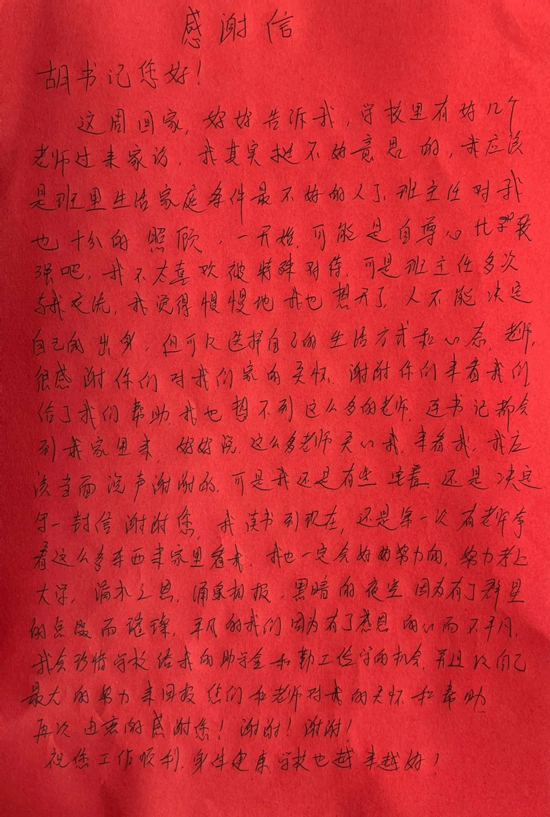 感谢信
胡书记您好!
这周回家,好好告诉我,学校里有好几个
老师过来家访,我其实挺不好意思的,我应该
是班里生活家庭条件最不好的人了,班主任对我
也十分的照顾,一开始,可能是自尊心比较
强吧,我不太喜欢被特殊对待,可是班主任多次
与我交流,我觉得慢慢地我也想开了,人不能决定
自己的出身,但可以选择自己的生活方式和心态,老师,
很感谢你们对我们家的关怀,谢谢你们来看我们
给了我们帮助,我也想不到这么多的老师,连书记都会
到我家里来,好好说,这么多老师关心我,来看我,我应
该当面说声谢谢的,可是我还是有些 还是决定
写一封信谢谢您,我读书到现在,还是第一次有老师拿
着这么多东西来家里看我,我也一定会好好努力的,努力考上
大学,滴水之恩,涌泉相报,黑暗的夜空因为有了群星
的点缀而璀璨,平凡的我们因为有了感恩的心而不平凡,
我会珍惜学校给我的助学金和勤工俭学的机会,并且以自己
最大的努力来回报您们和老师对我的关怀和帮助
再次由衷的感谢您!谢谢!谢谢!
祝您工作顺利,身体健康,学校也越来越好!